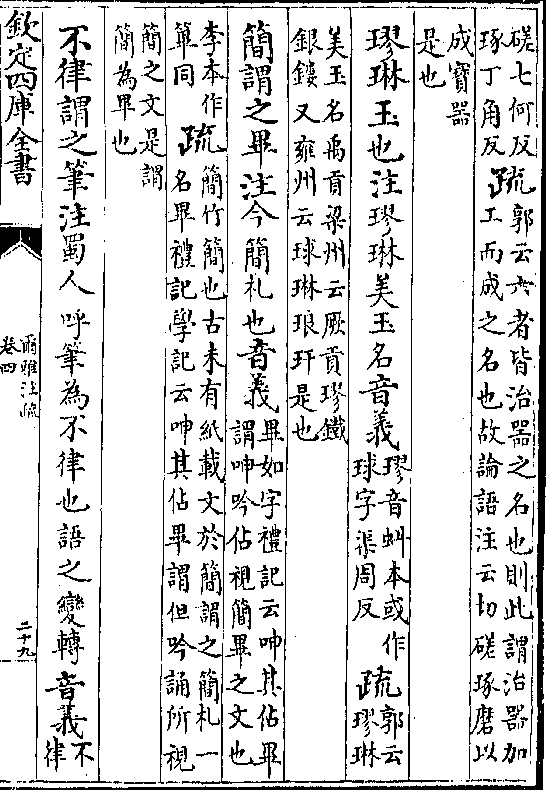 磋七何反
琢丁角反
疏
郭云六者皆治器之名也則此謂治器加
工而成之名也故論語注云切磋琢磨以
成寶器
是也
璆琳玉也注璆琳美玉名音義
璆音虯本或作
球字渠周反
疏
郭云
璆琳
美玉名禹貢梁州云厥貢璆鐵
銀鏤又雍州云球琳琅玕是也
簡謂之畢注今簡札也音義
畢如字禮記云呻其佔畢
謂呻吟佔視簡畢之文也
李本作
篳同
疏
簡竹簡也古未有紙載文於簡謂之簡札一
名畢禮記學記云呻其佔畢謂但吟誦所視
簡之文是謂
簡為畢也
不律謂之筆注蜀人呼筆為不律也語之變轉音義
不
律
欽定四庫全書
爾雅注疏
卷四
二十九